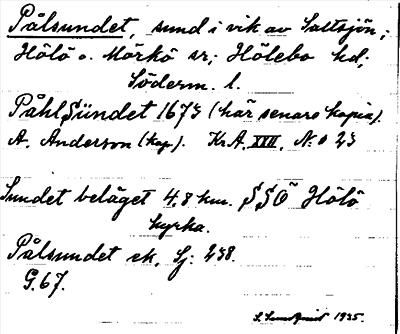 Pålsundet, sund i vik av Saltsjön;
Hölö o. Mörkö sr; Hölebo hd;
Söderm. l.
PåhlSündet 1673 (här senare kopia).
A. Anderson (kop). Kr.A. XXII, N:o 23
Sundet beläget 4.8 km. SSO Hölö
kyrka.
Pålsundet ek, Sj: 238.
G.67.
S. Lundquist 1935.